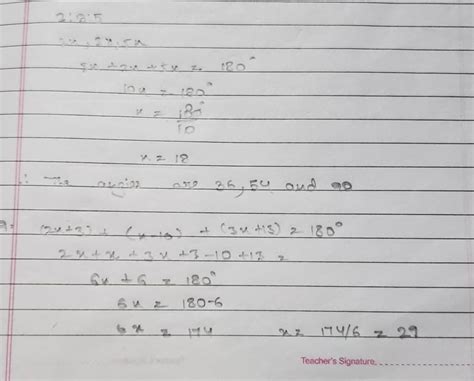 3:2:5
3x, 2x, 5x
3x + 2x + 5x = 180°
10x = 180°
x = 180°/10
x = 18
∴ The angles are 36, 54 and 90
(2x+3) + (x-10) + (3x+13) = 180°
2x + x + 3x + 3 - 10 + 13 =
6x + 6 = 180°
6x = 180-6
6x = 174 x = 174/6 = 29
Teacher's Signature